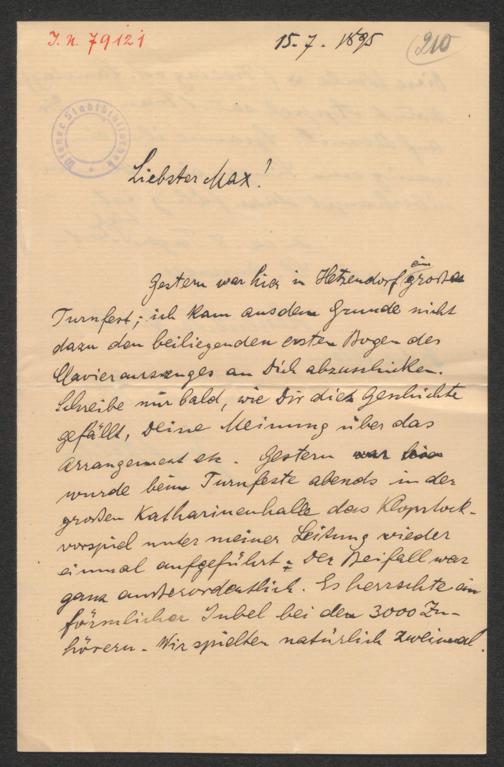 J. N. 79121
15.-7. 1895
210
Wiener Stadtbibliothek
Liebster Max!
Gestern war hier in Hetzendorf ein großes
Turnfest; ich kam aus dem Grunde nicht
dazu den beiliegenden ersten Bogen des
Clavierauszuges an Dich abzuschicken.
Schreibe nur bald, wie Dir die Geschichte
gefällt, Deine Meinung über das
Arrangement etc. Gestern war
wurde beim Turnfeste abends in der
großen Katharinenhalle das Klopstock-
vorspiel unter meiner Leitung wieder
einmal aufgeführt. Der Beifall war
ganz außerordentlich. Es herrschte ein
förmlicher Jubel bei den 3000 Zu-
hörern. Wir spielten natürlich zweimal.